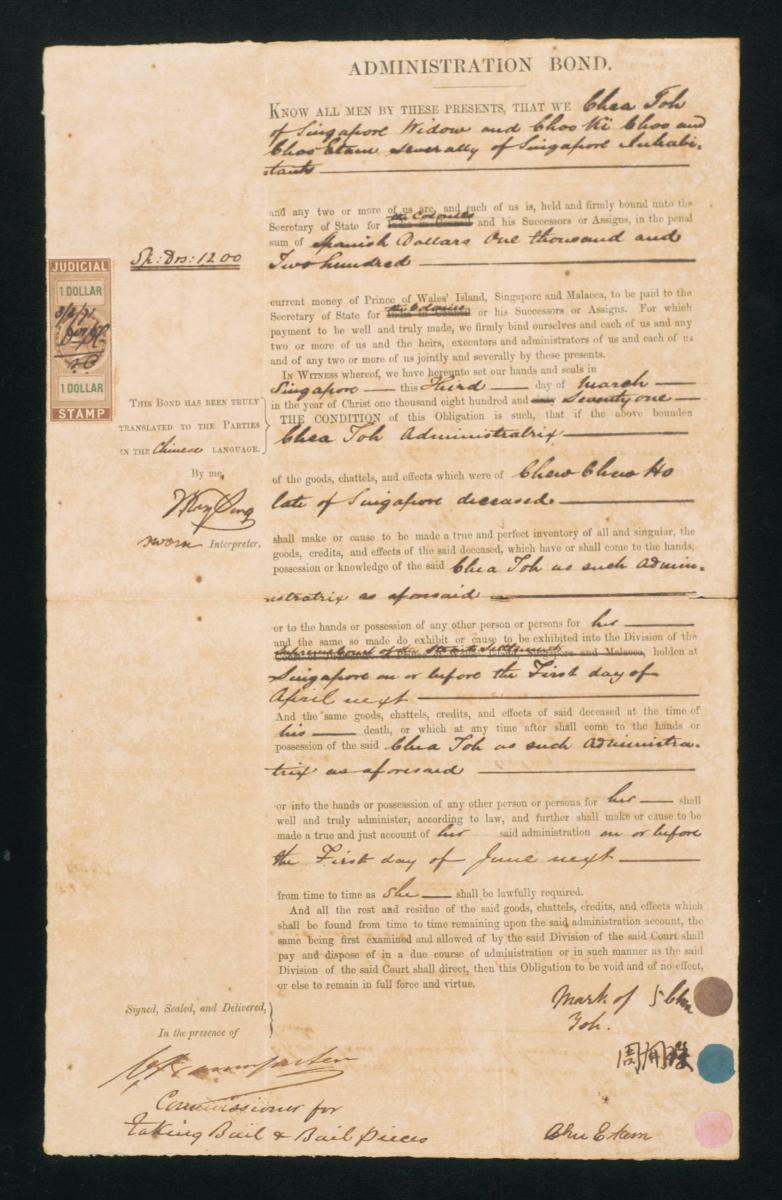 ADMINISTRATION BOND.
KNOW ALL MEN BY THESE PRESENTS, THAT WE Chea Toh
of Singapore Widow and Choo Ki Choo and
Choo Etam severally of Singapore Inhabi-
tants
and any two or more of us are, and each of us is, held and firmly bound unto the
Secretary of State for the Colonies and his Successors or Assigns, in the penal
sum of Spanish Dollars One thousand and
Two hundred
Sp: Drs: 1200
JUDICIAL
1 DOLLAR
3/3/71
1 DOLLAR
STAMP
current money of Prince of Wales' Island, Singapore and Malacca, to be paid to the
Secretary of State for the Colonies or his Successors or Assigns. For which
payment to be well and truly made, we firmly bind ourselves and each of us and any
two or more of us and the heirs, executors and administrators of us and each of us
and of any two or more of us jointly and severally by these presents.
In Witness whereof, we have hereunto set our hands and seals in
Singapore this Third day of March
in the year of Christ one thousand eight hundred and Seventy one
THE CONDITION of this Obligation is such, that if the above bounden
Chea Toh Administratrix
THIS BOND HAS BEEN TRULY
TRANSLATED TO THE PARTIES
IN THE Chinese LANGUAGE.
By me,
sworn Interpreter.
of the goods, chattels, and effects which were of Chew Chew Ho
late of Singapore deceased
shall make or cause to be made a true and perfect inventory of all and singular, the
goods, credits, and effects of the said deceased, which have or shall come to the hands,
possession or knowledge of the said Chea Toh as such Admin-
istratrix as aforesaid
or to the hands or possession of any other person or persons for her
and the same so made do exhibit or cause to be exhibited into the Division of the
Supreme Court of the Straits Settlements Singapore and Malacca, holden at
Singapore on or before the First day of
April next
And the same goods, chattels, credits, and effects of said deceased at the time of
his death, or which at any time after shall come to the hands or
possession of the said Chea Toh as such Administra-
trix as aforesaid
or into the hands or possesssion of any other person or persons for her shall
well and truly administer, according to law, and further shall make or cause to be
made a true and just account of her said administration on or before
the First day of June next
from time to time as She shall be lawfully required.
And all the rest and residue of the said goods, chattels, credits, and effects which
shall be found from time to time remaining upon the said administration account, the
same being first examined and allowed of by the said Division of the said Court shall
pay and dispose of in a due course of administration or in such manner as the said
Division of the said Court shall direct, then this Obligation to be void and of no effect,
or else to remain in full force and virtue.
Signed, Sealed, and Delivered,
In the presence of
Commissioner for
taking Bail & Bail pieces
Mark of Chea
Toh.
周有
Chu Etam